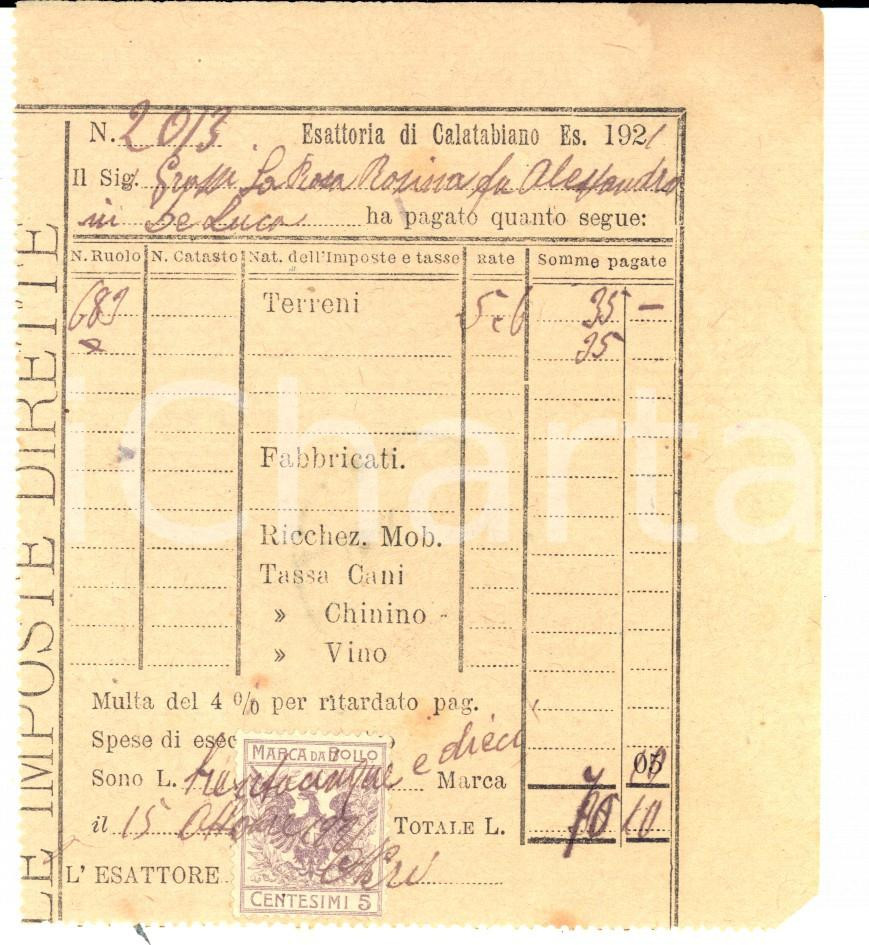 LE IMPOSTE DIRETTE
N. 2013 Esattoria di Calatabiano Es. 1921
Il Sig. Grassi La Rosa Rosina fu Alessandro
in De Luca ha pagato quanto segue:
N. Ruolo N. Catasto Nat. dell'Imposte e tasse Rate Somme pagate
683 Terreni 5-6 35 —
35
Fabbricati.
iCharta
Ricchez. Mob.
Tassa Cani
» Chinino -
» Vino
Multa del 4 % per ritardato pag.
Spese di esec
MARCA DA BOLLO
Sono L. trentacinque e dieci Marca 05
il 15 Ottobre 1921 TOTALE L. 10
L' ESATTORE
CENTESIMI 5